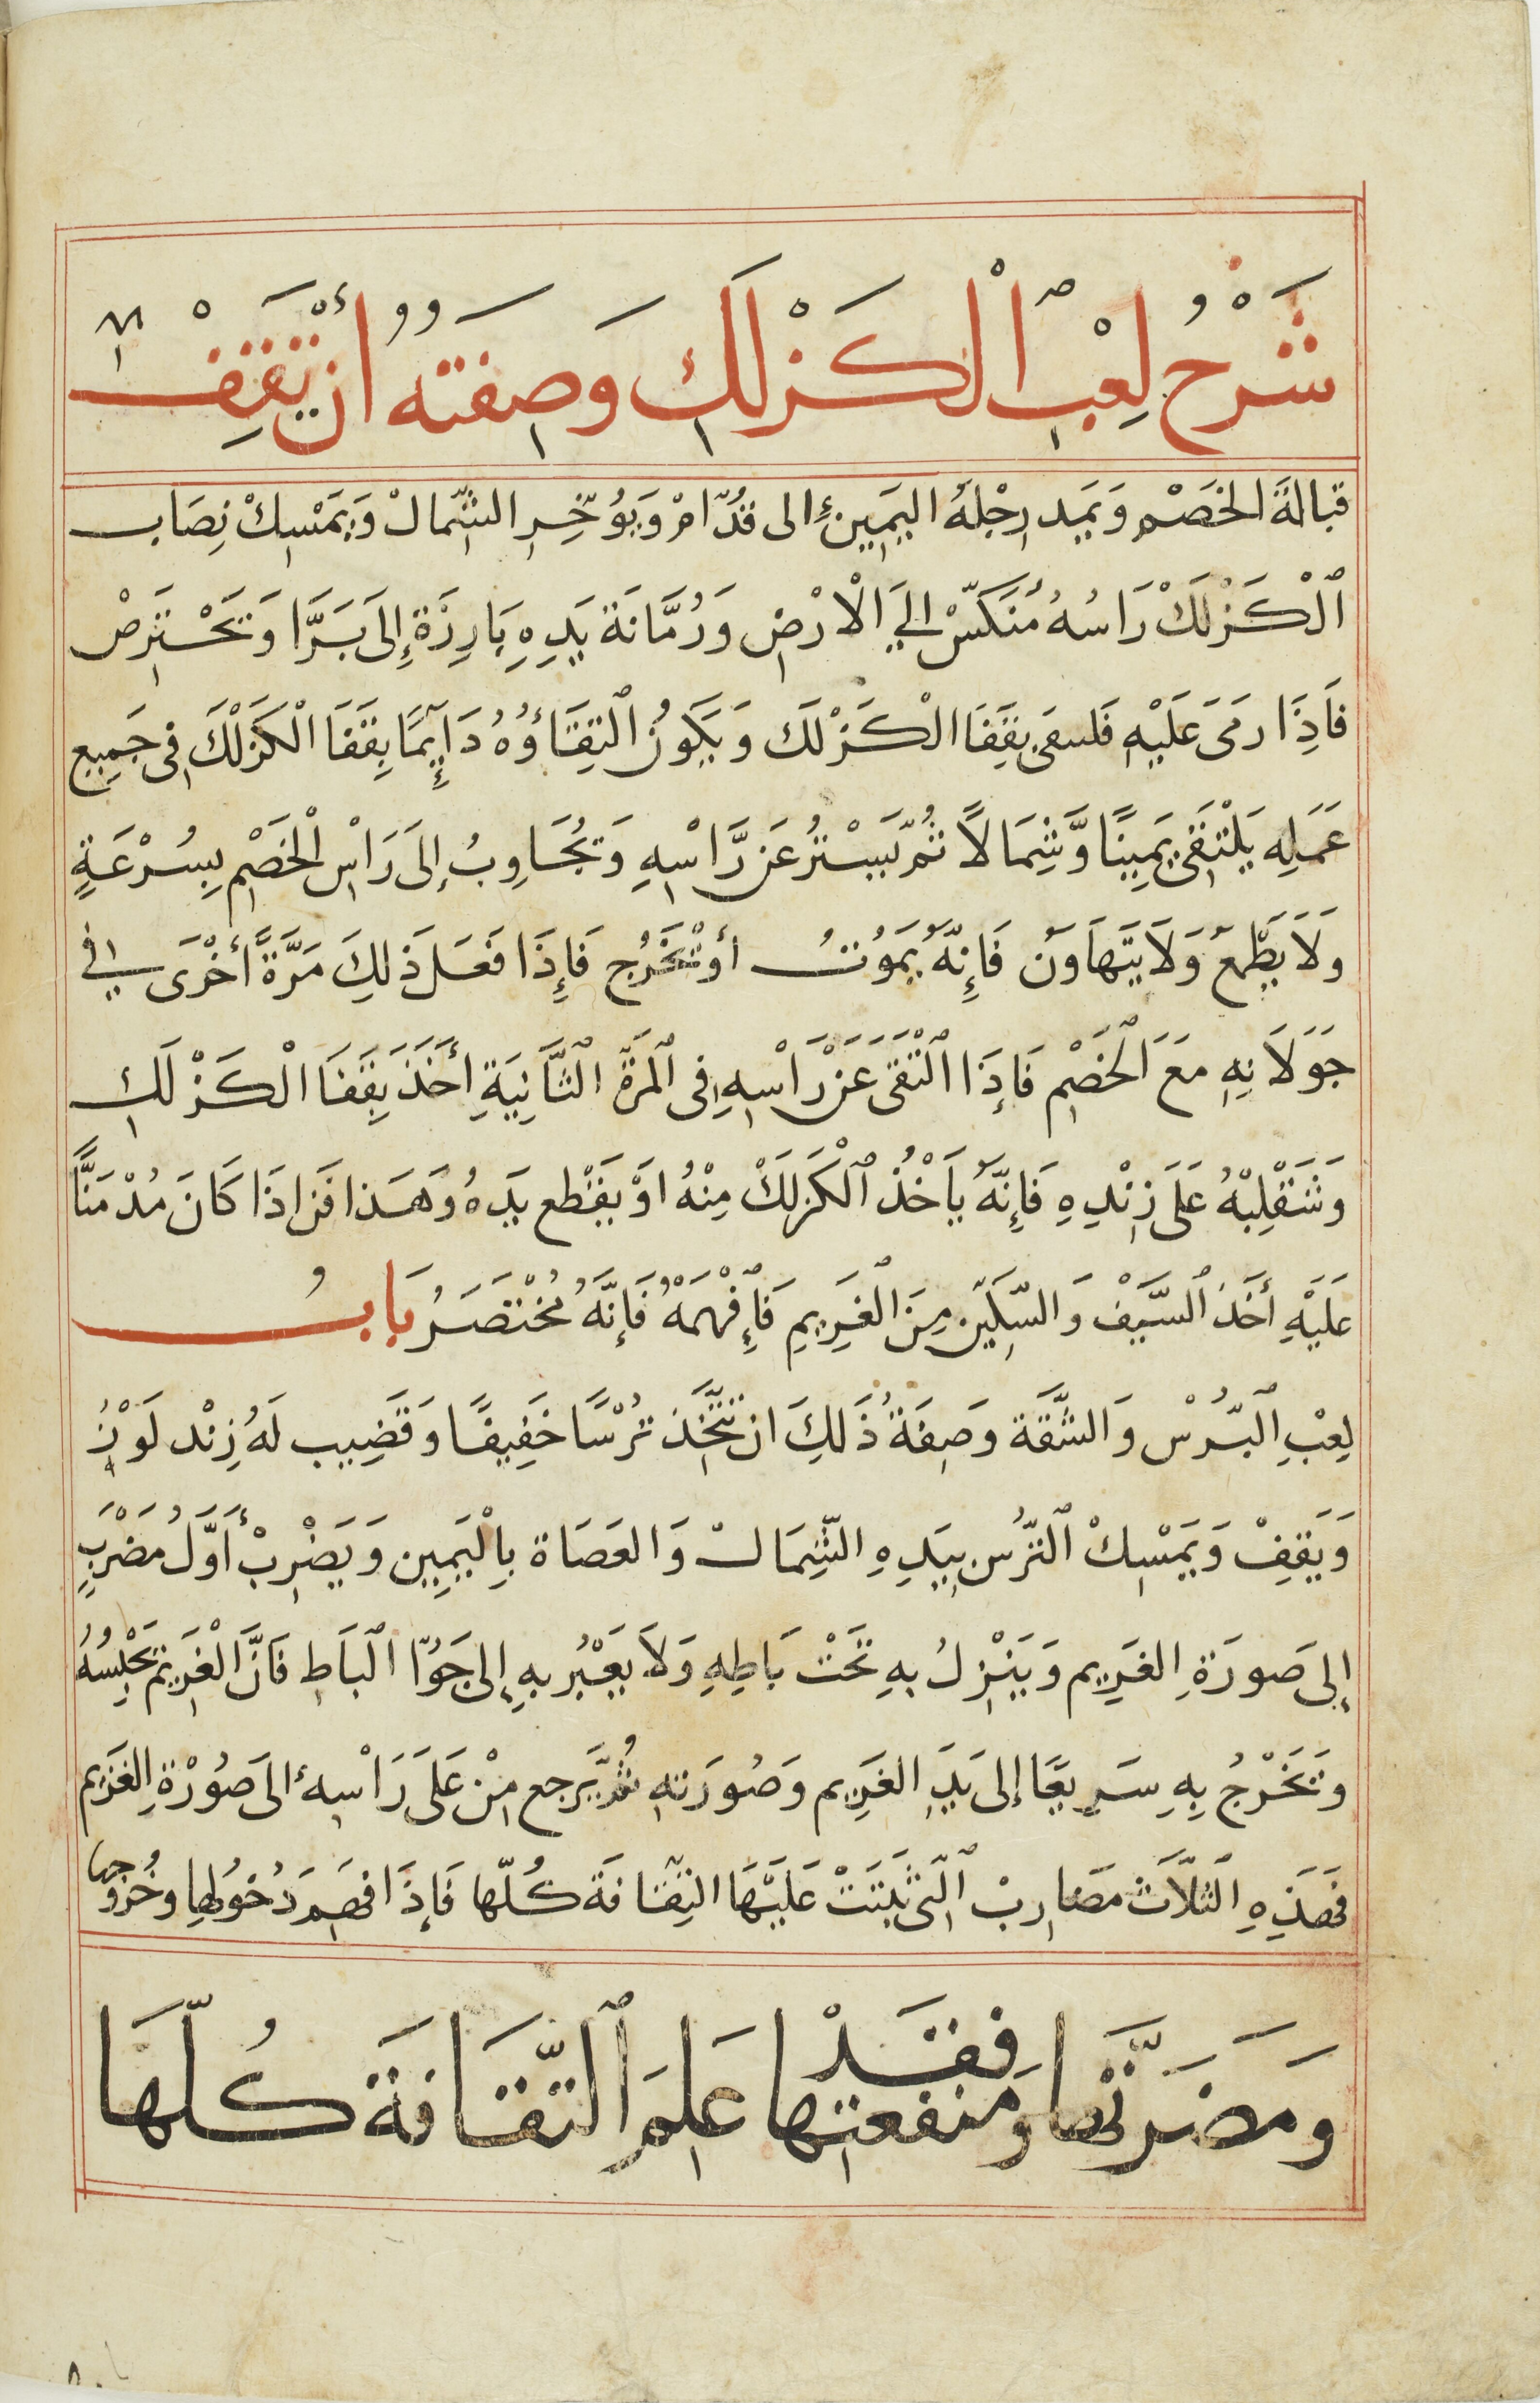 شَرْحُ لِعْبِ الْكَزْلَكِ وَصِفَتُهُ أَنْ تَقِفْ
قبالةَ الخَصْمِ وَيَمَد رِجْلهُ اليَمِين إلى قُدّامْ وَيُوَخِّرِ الشِّمالْ وَيَمْسِكْ نِصَاب
الْكَزْلَكْ رَاسُهُ مُنَكَّسْ إلي الْارْضِ وَرُمَّانَة يَدِهِ بَارِزَة إِلَى بَرَّا وَتَحْتَرِصْ
فَاذِا رمَى عَلَيْهِ فَلسقى بقَفَا الْكَزْلَك وَيَكُونُ الْتِقَاؤُهُ دَايِمًا بِقَفَا الْكَزْلَكِ في جَمِيع
عَمَلِه يَلْتقَى يَمِينًا وَّشِمَالاً ثُمّ يَسْتَتِرُ عَن رَّاسْهِ وَتُجَاوِبُ إلَى رَاسْ الْخَصْمِ بِسُرْعَةٍ
وَلَا يَطْمَعْ وَلَا يَتَهَاوَن فَإِنّهُ يَمَوُتُ أوْ تُخَرج فَإِذَا فَعَلَ ذَلِكَ مَرَّةً أخْرَى في
جَوَلَانِهِ مَعَ الْخَصْمِ فَإذَا الْتَقَى عَنْ رَاسْهِ في الْمَرةَ الْثَّانِيَةِ أَخَذَ بِقَفَا الْكَزْلَكِ
وَشَقْلِبْهُ عَلَى زِنْدِهِ فَاِنَّهُ يَاخُذْ الْكَزلَكْ مِنْهُ اوْ يَقْطع يَدهُ وهَذا فَن اذَا كَانَ مُدْمَنًا
عَلَيْهِ أخَذ السَّيْف وَالسّكّين مِنَ الْغَرِيمِ فَافْهَمَهُ فَإنَّهُ مُخْتَصَرُ بَابُ
لِعْبِ الْبُّرْسْ وَالشَّقة وَصِفَةُ ذَلِكَ ان تتّخَذ تُرْسًا خَفِيفًا وَقَضِيب لَهُ زِنْد لَوْزِ
وَيَقِفْ وَيَمْسِكْ الْتّرُس بِيَدِهِ الشِّمَالْ وَالعَصَاة بِالْيَمِين وَيَضْرِبْ أَوَّلُ مَضْرَبٍ
إلى صَورَةِ الغَرِيم وَيَنْزِلُ بهِ تَحْتْ بَاطِهِ وَلَا يَعْبُر بهِ إلى جَوّا الْبَاطِ فَانَّ الْغَرِيم يَحْلِسُهُ
وَتَخْرُجُ بِهِ سَرِيعًا إلى يَدِ الغَرِيم وَصُورَتهِ ثُمّ يَرجع مِنْ عَلَى رَاسْهِ الَى صُوْرَةِ الغَرَيم
فَهَذِهِ الْثَلَاث مَضَارِبْ الْتِى ثَبَتَتْ عَلَيْهَا الثِقَافَة كُلّها فَإذَا فَهَمَ دُخُولهِا وخُرُوجهِا
وَمَضَرَّتها وَمنفعتها فقَدْ عَلِمَ الْثّقَافَة كُلّهَا